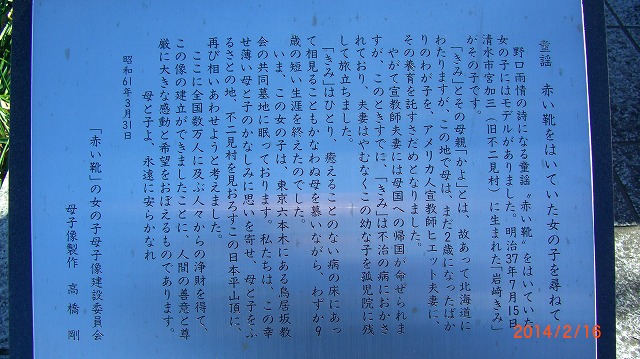 童謡　赤い靴をはいていた女の子を尋ねて
野口雨情の詩になる童謡〝赤い靴〟をはいていた
女の子にはモデルがありました。明治37年7月15日
清水市宮加三（旧不二見村）に生まれた「岩崎きみ」
がその子です。
「きみ」とその母親「かよ」とは、故あって北海道に
わたりますが、この地で母は、まだ2歳になったばか
りのわが子を、アメリカ人宣教師ヒュエット夫妻に、
その養育を託すさだめとなりました。
やがて宣教師夫妻には母国への帰国が命ぜられま
すが、このときすでに、「きみ」は不治の病におかさ
れており、夫妻はやむなくこの幼な子を孤児院に残
して旅立ちました。
「きみ」はひとり、癒えることのない病の床にあっ
て相見ることもかなわぬ母を慕いながら、わずか9
歳の短い生涯を終えたのでした。
いま、この女の子は、東京六本木にある鳥居坂教
会の共同墓地に眠っております。私たちは、この幸
せ薄い母と子のかなしみに思いを寄せ、母と子をふ
るさとの地、不二見村を見おろすこの日本平山頂に、
再び相いあわせようと考えました。
ここに全国数万人に及ぶ人々からの浄財を得て、
この像の建立ができましたことに、人間の善意と尊
厳に大きな感動と希望をおぼえるものであります。
母と子よ、永遠に安らかなれ
昭和61年3月31日
「赤い靴」の女の子母子像建設委員会
母子像製作　高橋　剛
2014/2/16